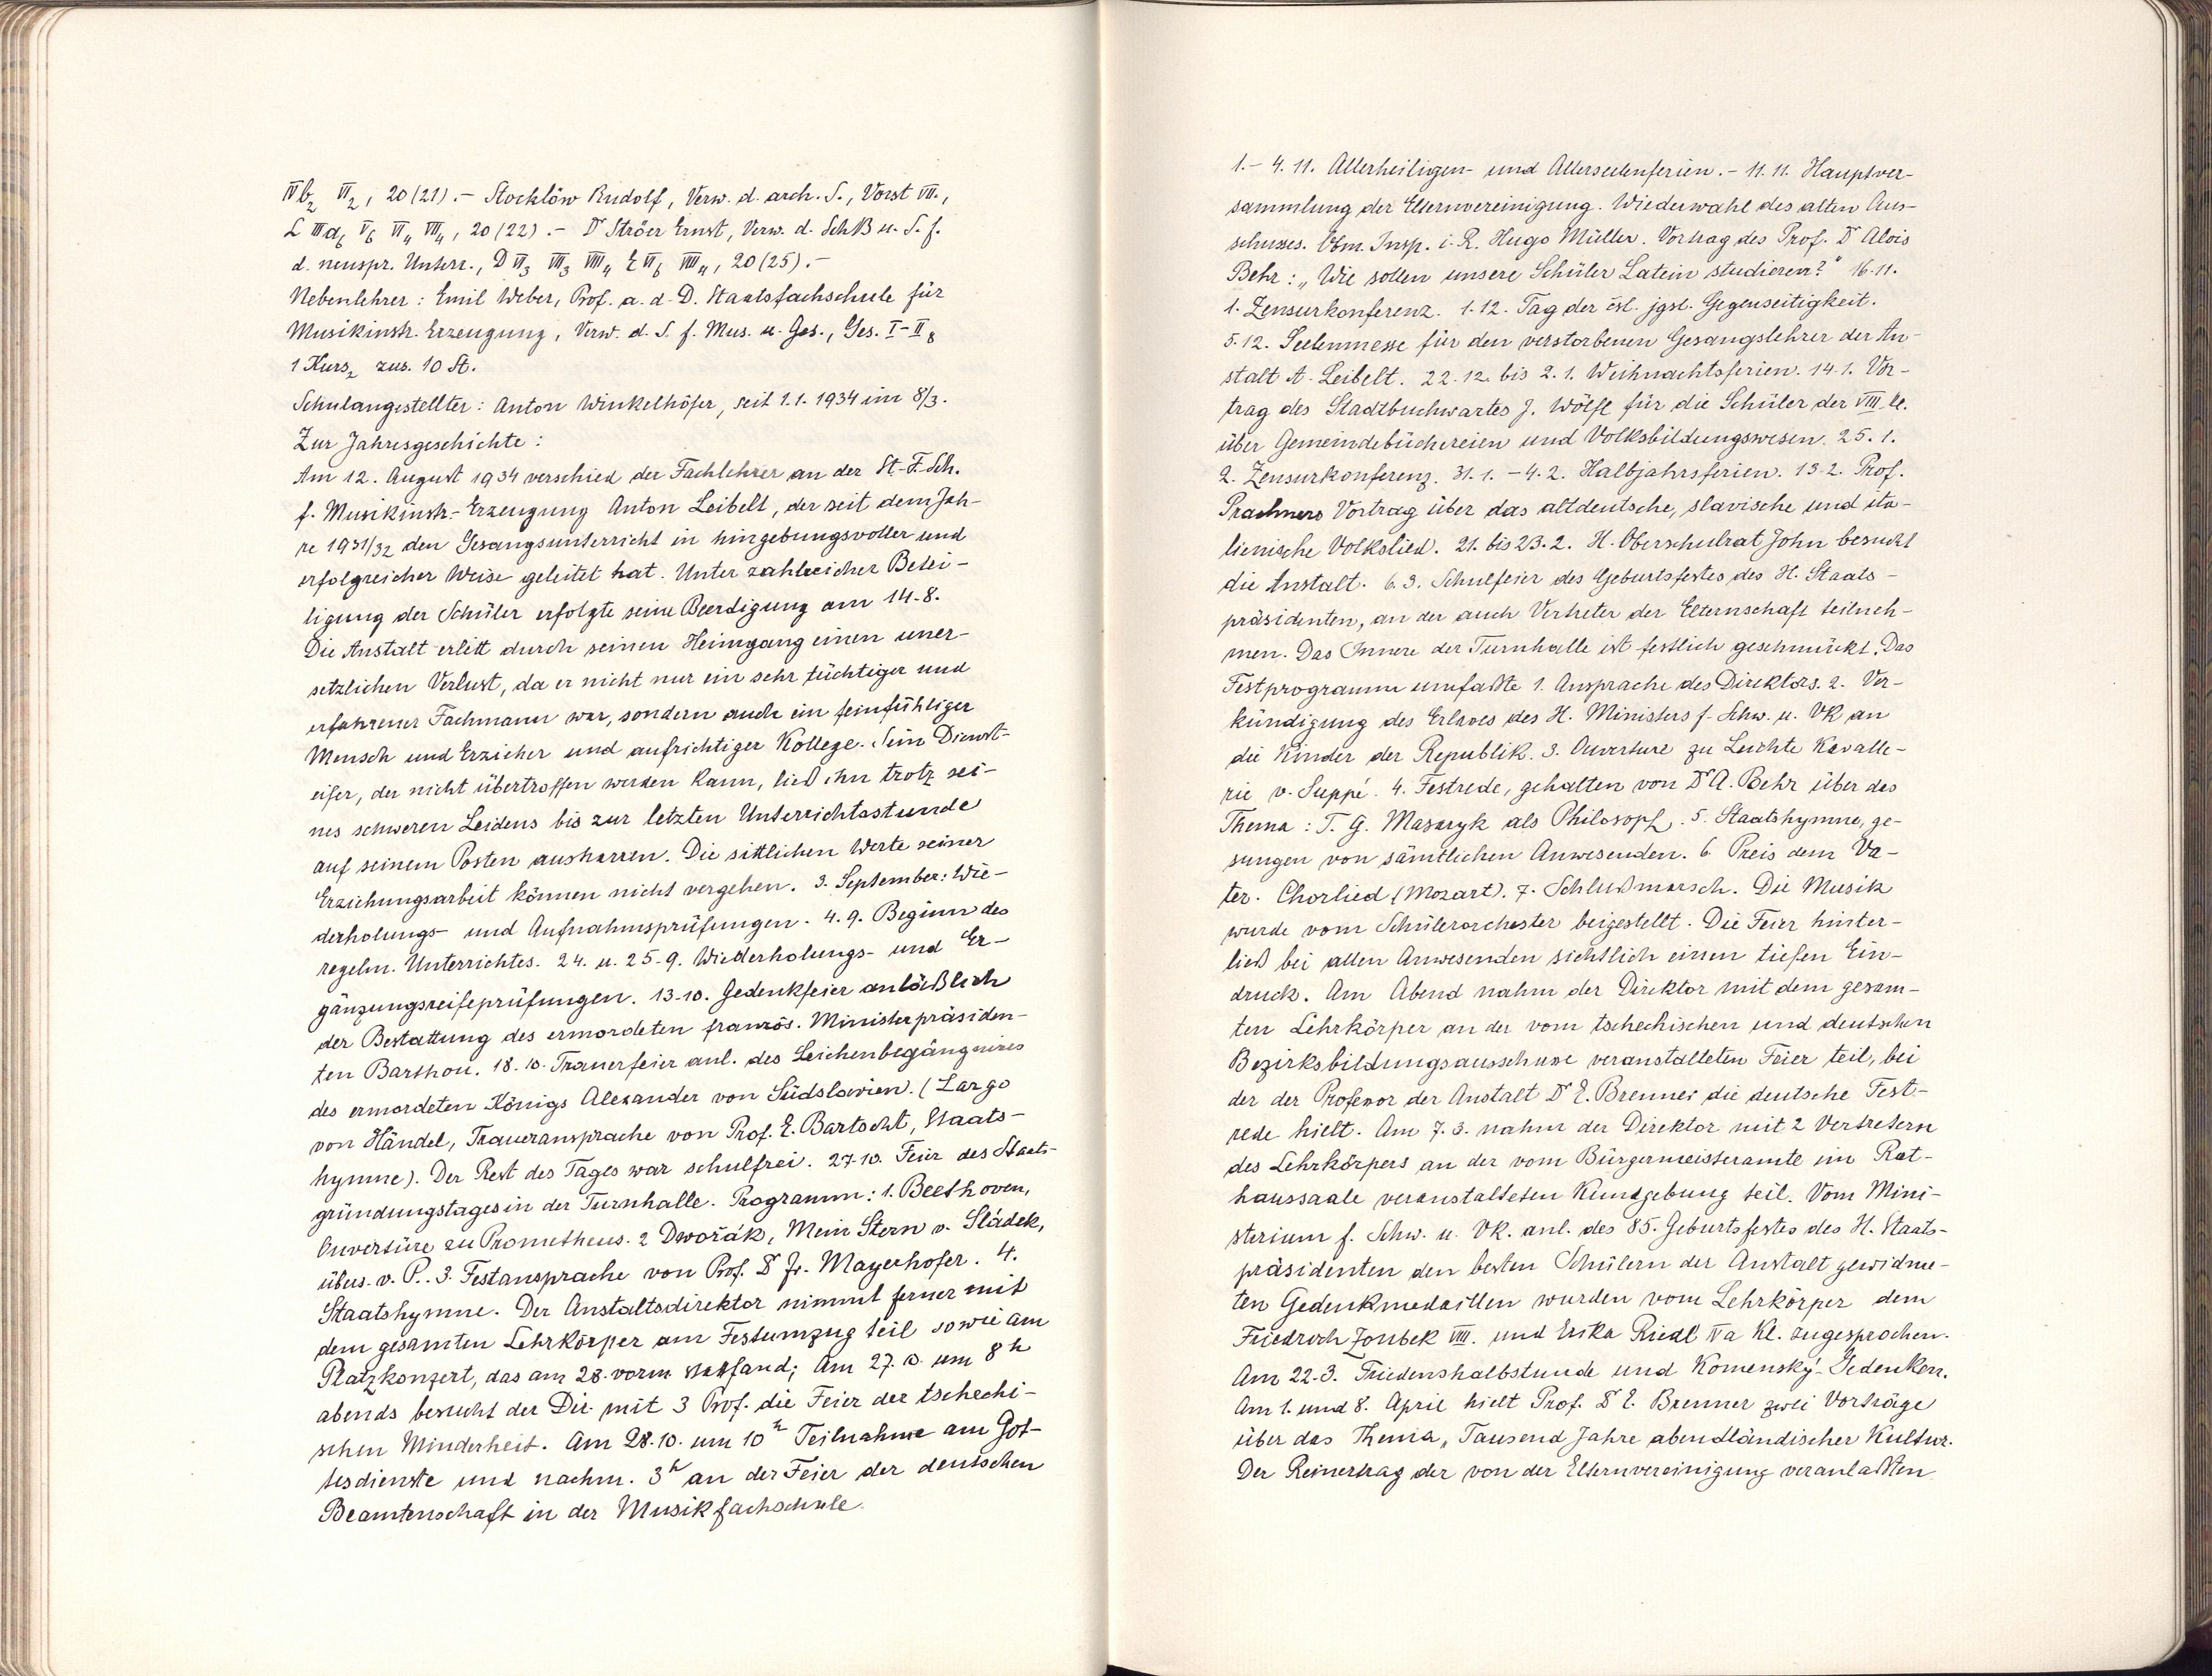 IVb₂ VI₂, 20(21).- Stocklöw Rudolf, Verw. d. arch. S., Vorst VII.,
L IIIa₆ V₆ VI₄ VII₄, 20(22).- Dr Ströer Ernst, Verw. d. SchB u. S. f.
d. neuspr. Unterr., D VI₃ VII₃ VIII₄ E VI₆ VIII₄, 20(25).-
Nebenlehrer: Emil Weber, Prof. a. d. D. Staatsfachschule für
Musikinstr. Erzeugung, Verw. d. S. f. Mus. u. Ges., Ges. I-II₈
1 Kurs₂ zus. 10 St.
Schulangestellter: Anton Winkelhöfer, seit 1.1.1934 im 8/3.
Zur Jahresgeschichte:
Am 12. August 1934 verschied der Fachlehrer an der St.-F. Sch.
f. Musikinstr.-Erzeugung Anton Leibelt, der seit dem Jah-
re 1931/32 den Gesangsunterricht in hingebungsvoller und
erfolgreicher Weise geleitet hat. Unter zahlreicher Betei-
ligung der Schüler erfolgte seine Beerdigung am 14.8.
Die Anstalt erlitt durch seinen Heimgang einen uner-
setzlichen Verlust, da er nicht nur ein sehr tüchtiger und
erfahrener Fachmann war, sondern auch ein feinfühliger
Mensch und Erzieher und aufrichtiger Kollege. Sein Dienst-
eifer, der nicht übertroffen werden kann, ließ ihn trotz sei-
nes schweren Leidens bis zur letzten Unterrichtsstunde
auf seinem Posten ausharren. Die sittlichen Werte seiner
Erziehungsarbeit können nicht vergehen. 3. September: Wie-
derholungs- und Aufnahmsprüfungen. 4.9. Beginn des
regelm. Unterrichtes. 24. u. 25.9. Wiederholungs- und Er-
gänzungsreifeprüfungen. 13.10. Gedenkfeier anläßlich
der Bestattung des ermordeten französ. Ministerpräsiden-
ten Barthou. 18.10. Trauerfeier anl. des Leichenbegängnisses
des ermordeten Königs Alexander von Südslavien. (Largo
von Händel, Traueransprache von Prof. E. Bartscht, Staats-
hymne). Der Rest des Tages war schulfrei. 27.10. Feier des Staats-
gründungstages in der Turnhalle. Programm: 1. Beethoven,
Ouvertüre zu Prometheus. 2 Dwořák, Mein Stern v. Sládek,
übers. v. P.. 3. Festansprache von Prof. Dr Fr. Mayerhofer. 4.
Staatshymne. Der Anstaltsdirektor nimmt ferner mit
dem gesamten Lehrkörper am Festumzug teil sowie am
Platzkonzert, das am 28. vorm stattfand; Am 27.10. um 8h
abends besucht der Dir. mit 3 Prof. die Feier der tschechi-
schen Minderheit. Am 28.10. um 10h Teilnahme am Got-
tesdienste und nachm. 3h an der Feier der deutschen
Beamtenschaft in der Musikfachschule.
1.- 4.11. Allerheiligen- und Allerseelenferien.- 11.11. Hauptver-
sammlung der Elternvereinigung. Wiederwahl des alten Aus-
schusses. Obm. Insp. i. R. Hugo Müller. Vortrag des Prof. Dr Alois
Behr: „Wie sollen unsere Schüler Latein studieren?" 16.11.
1. Zensurkonferenz. 1.12. Tag der čsl. jgsl. Gegenseitigkeit.
5.12. Seelenmesse für den verstorbenen Gesangslehrer der An-
stalt A. Leibelt. 22.12. bis 2.1. Weihnachtsferien. 14.1. Vor-
trag des Stadtbuchwartes J. Wölfl für die Schüler der VIII. Kl.
über Gemeindebüchereien und Volksbildungswesen. 25.1.
2. Zensurkonferenz. 31.1.-4.2. Halbjahrsferien. 13.2. Prof.
Prachners Vortrag über das altdeutsche, slavische und ita-
lienische Volkslied. 21. bis 23.2. H. Oberschulrat John besucht
die Anstalt. 6.3. Schulfeier des Geburtsfestes des H. Staats-
präsidenten, an der auch Vertreter der Elternschaft teilneh-
men. Das Innere der Turnhalle ist festlich geschmückt. Das
Festprogramm umfaßte 1. Ansprache des Direktors. 2. Ver-
kündigung des Erlasses des H. Ministers f. Schw. u. VK an
die Kinder der Republik. 3. Ouverture zu Leichte Kavalle-
rie v. Suppé. 4. Festrede, gehalten von Dr A. Behr über das
Thema: T. G. Masaryk als Philosoph. 5. Staatshymne, ge-
sungen von sämtlichen Anwesenden. 6. Preis dem Va-
ter. Chorlied (Mozart). 7. Schlußmarsch. Die Musik
wurde vom Schülerorchester beigestellt. Die Feier hinter-
ließ bei allen Anwesenden sichtlich einen tiefen Ein-
druck. Am Abend nahm der Direktor mit dem gesam-
ten Lehrkörper an der vom tschechischen und deutschen
Bezirksbildungsausschusse veranstalteten Feier teil, bei
der der Professor der Anstalt Dr E. Brenner die deutsche Fest-
rede hielt. Am 7.3. nahm der Direktor mit 2 Vertretern
des Lehrkörpers an der vom Bürgermeisteramte im Rat-
haussaale veranstalteten Kundgebung teil. Vom Mini-
sterium f. Schw. u. VK. anl. des 85. Geburtsfestes des H. Staats-
präsidenten den besten Schülern der Anstalt gewidme-
ten Gedenkmedaillen wurden vom Lehrkörper dem
Friedrich Zoubek VIII. und Erika Riedl Va Kl. zugesprochen.
Am 22.3. Friedenshalbstunde und Komenský-Gedenken.
Am 1. und 8. April hielt Prof. Dr E. Brenner zwei Vorträge
über das Thema „Tausend Jahre abendländischer Kultur.
Der Reinertrag der von der Elternvereinigung veranlaßten